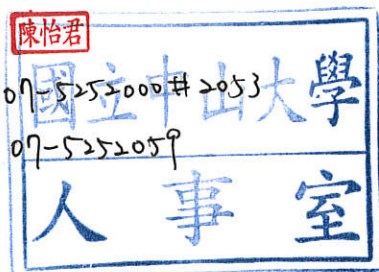 陳怡君
國立中山大學
07-5252000#2053
07-5252059
人事室